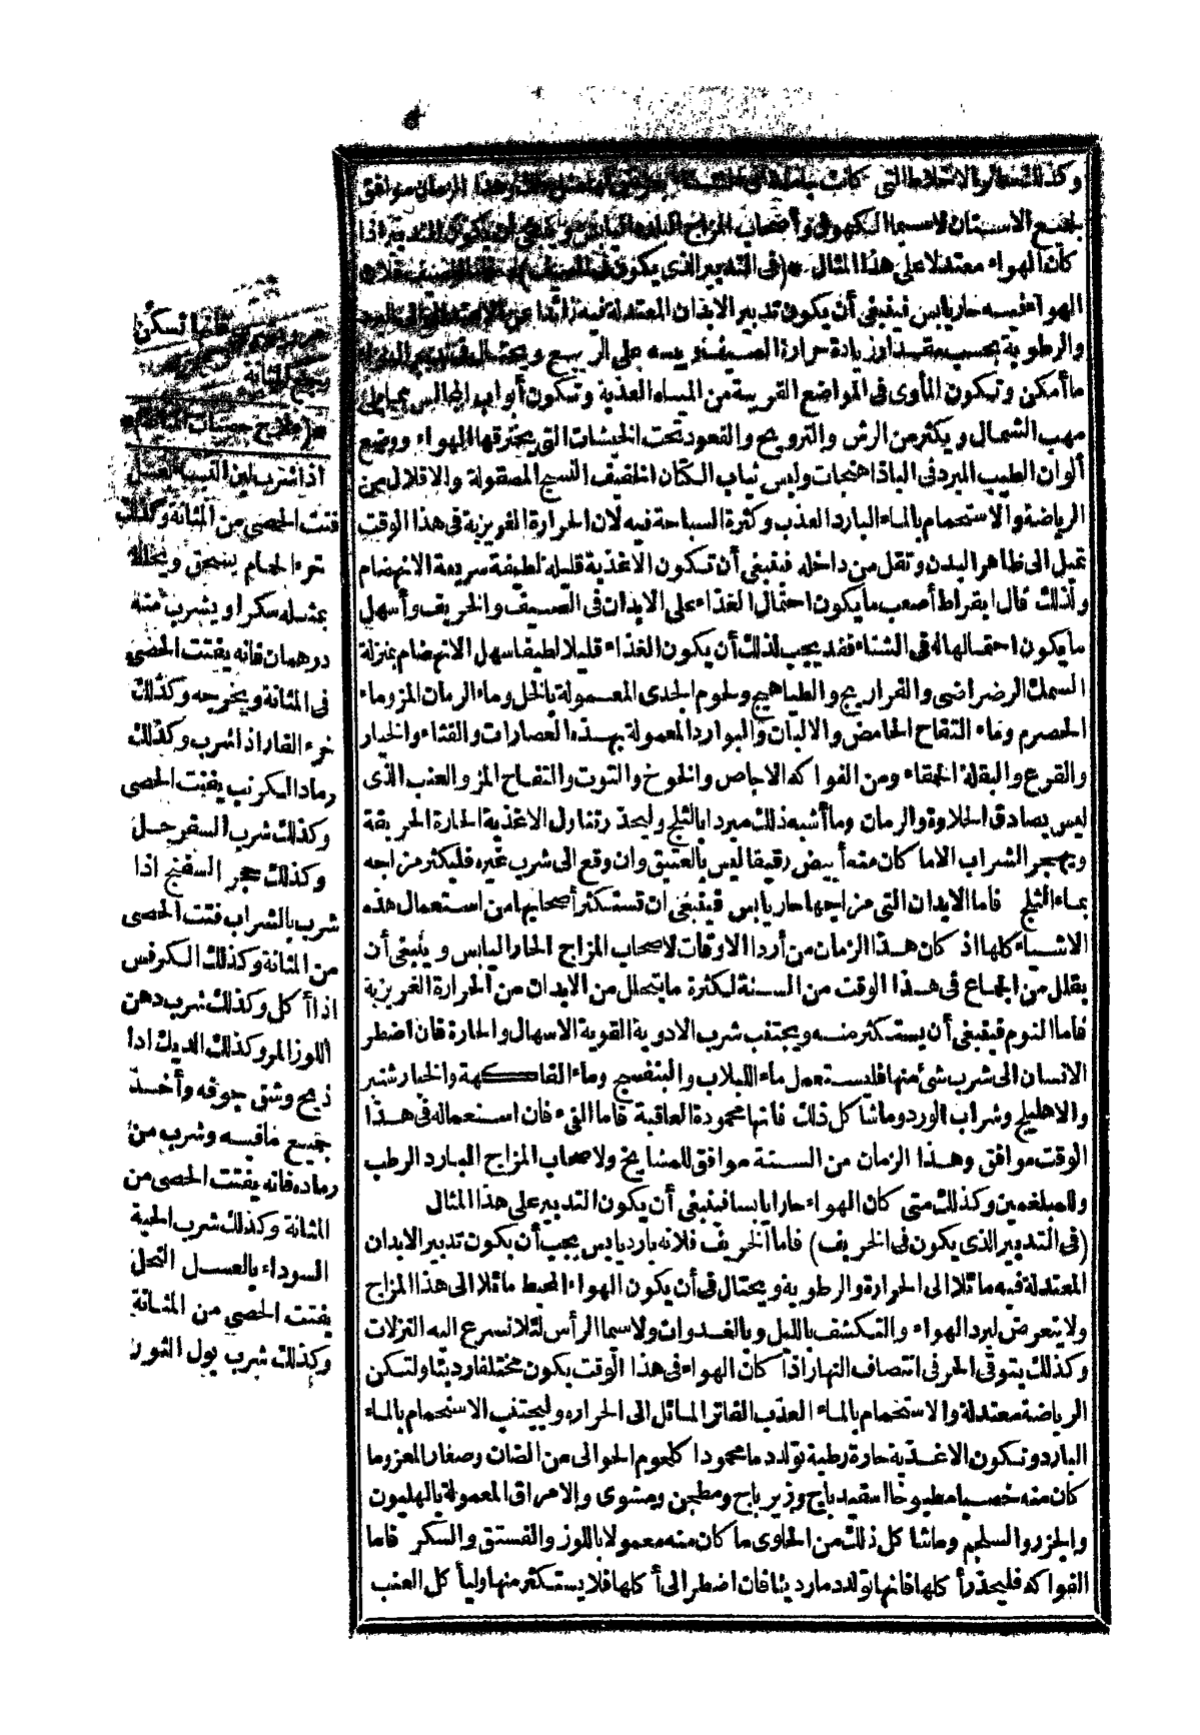 وكذلك سائر الاخلاط التى كانت
لجميع الاسنان لاسيما الكهول وأصحاب المزاج البارد اليابس وينبغى أن يكون التدبير اذا
كان الهواء معتدلا على هذا المثال * (فى التدبير الذى يكون فى الصيف)
الهواء فيه حار يابس فينبغى أن يكون تدبير الابدان المعتدلة فيه زائدا عن الاعتدال الى البرد
والرطوبة بحسب مقدار زيادة حرارة الصيف ويبسه على الربيع ويحتال فى تدبير الهواء
ما أمكن وتكون المأوى فى المواضع القريبة من المياه العذبة وتكون أبواب المجالس مما يلى
مهب الشمال ويكثر من الرش والترويح والقعود تحت الخيشات التى يخترقها الهواء ووضع
ألوان الطيب المبرد فى الباذاهنجات ولبس ثياب الكتان الخفيف النسج المصقولة والاقلال من
الرياضة والاستحمام بالماء البارد العذب وكثرة السباحة فيه لان الحرارة الغريزية فى هذا الوقت
تميل الى ظاهر البدن وتقل من داخله فينبغى أن تكون الاغذية قليلة لطيفة سريعة الانهضام
ولذلك قال ابقراط أصعب ما يكون احتمال الغذاء على الابدان فى الصيف والخريف وأسهل
ما يكون احتمالها له فى الشتاء فقد يجب لذلك أن يكون الغذاء قليلا لطيفا سهل الانهضام بمنزلة
السمك الرضراضى والفراريج والطياهيج ولحوم الجدى المعمولة بالخل وماء الرمان المز وماء
الحصرم وماء التفاح الحامض والالبان والبوارد المعمولة بهذه العصارات والقثاء والخيار
والقرع والبقلة الحمقاء ومن الفواكه الاجاص والخوخ والتوت والتفاح المز والعنب الذى
ليس بصادق الحلاوة والرمان وما أشبه ذلك مبردا بالثلج وليحذر تناول الاغذية الحارة الحريفة
ويهجر الشراب الا ما كان منه أبيض رقيقا ليس بالعتيق وان وقع الى شرب غيره فليكثر مزاجه
بماء الثلج فاما الابدان التى مزاجها حار يابس فينبغى ان تستكثر أصحابها من استعمال هذه
الاشياء كلها اذ كان هذا الزمان من أردا الاوقات لاصحاب المزاج الحار اليابس وينبغى أن
يقلل من الجماع فى هذا الوقت من السنة لكثرة ما يتحلل من الابدان من الحرارة الغريزية
فاما النوم فينبغى أن يستكثر منه ويجتنب شرب الادوية القوية الاسهال والحارة فان اضطر
الانسان الى شرب شئ منها فليستعمل ماء اللبلاب والبنفسج وماء الفاكهة والخيار شنبر
والاهليلج وشراب الورد وماشا كل ذلك فانها محمودة العاقبة فاما القىء فان استعماله فى هذا
الوقت موافق وهذا الزمان من السنة موافق للمشايخ ولاصحاب المزاج البارد الرطب
وللمبلغمين وكذلك متى كان الهواء حارا يابسا فينبغى أن يكون التدبير على هذا المثال
(فى التدبير الذى يكون فى الخريف) فاما الخريف فلانه بارد يابس يجب أن يكون تدبير الابدان
المعتدلة فيه مائلا الى الحرارة والرطوبة ويحتال فى أن يكون الهواء المحيط مائلا الى هذا المزاج
ولا يتعرض لبرد الهواء والتكشف بالليل وبالغدوات ولاسيما الرأس لئلا تسرع اليه النزلات
وكذلك يتوقى الحر فى انتصاف النهار اذا كان الهواء فى هذا الوقت يكون مختلفا رديئا ولتكن
الرياضة معتدلة والاستحمام بالماء العذب الفاتر المائل الى الحرارة وليجتنب الاستحمام بالماء
البارد وتكون الاغذية حارة رطبة تولد دما محمودا كلحوم الحوالى من الضان وصغار المعز وما
كان منه خصيا مطبوخا اسفيدباج وزيرباج ومطجن ومشوى والامراق المعمولة بالهليون
والجزر والسلجم وماشا كل ذلك من الحلوى ما كان منه معمولا باللوز والفستق والسكر فاما
الفواكه فليحذر أكلها فانها تولد دما رديئا فان اضطر الى أكلها فلا يستكثر منها وليأ كل العنب
فانها تسكن
وجع المثانة
*(علاج حصاة المثانة)*
اذا شرب لبن
فتت الحصى من المثانة وكذلك
خرء الحمام يسحق ويخلط
بمثله سكرا ويشرب منه
درهمان فانه يفتت الحصى
فى المثانة ويخرجه وكذلك
خرء الفار اذا شرب وكذلك
رماد الكرنب يفتت الحصى
وكذلك شرب السفرجل
وكذلك حجر السفنج اذا
شرب بالشراب فتت الحصى
من المثانة وكذلك الكرفس
اذا أكل وكذلك شرب دهن
اللوز المر وكذلك الديك اذا
ذبح وشق جوفه وأخذ
جميع مافيه وشرب من
رماده فانه يفتت الحصى من
المثانة وكذلك شرب الحبة
السوداء بالعسل النحل
يفتت الحصى من المثانة
وكذلك شرب بول الثور